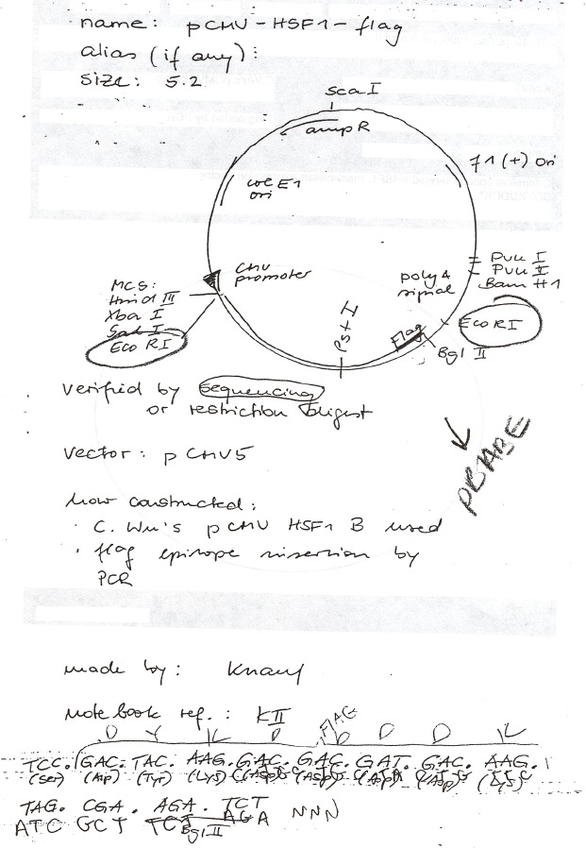 name: pCMV-HSF1-flag
alias (if any):
size: 5.2
ScaI
ampR
f1(+) Ori
col E1
ori
CMV
promoter
poly A
signal
Pvu I
Pvu II
Bam H1
MCS:
Hind III
Xba I
Sal I
Eco RI
Pst I
Flag
Eco RI
Bgl II
verified by sequencing
or restriction digest
vector: pCMV5
how constructed:
· C. Wu's pCMV HSF1 B used
· flag epitope insertion by
PCR
made by: Knauf
Note book ref.: KII
FLAG
D Y K D D D D K
TCC. GAC. TAC. AAG. GAC. GAC. GAT. GAC. AAG.
(Ser) (Asp) (Tyr) (Lys) (Asp) (Asp) (Asp) (Asp) (Lys)
TAG. CGA. AGA. TCT
ATC GCT TCT AGA NNN
Bgl II